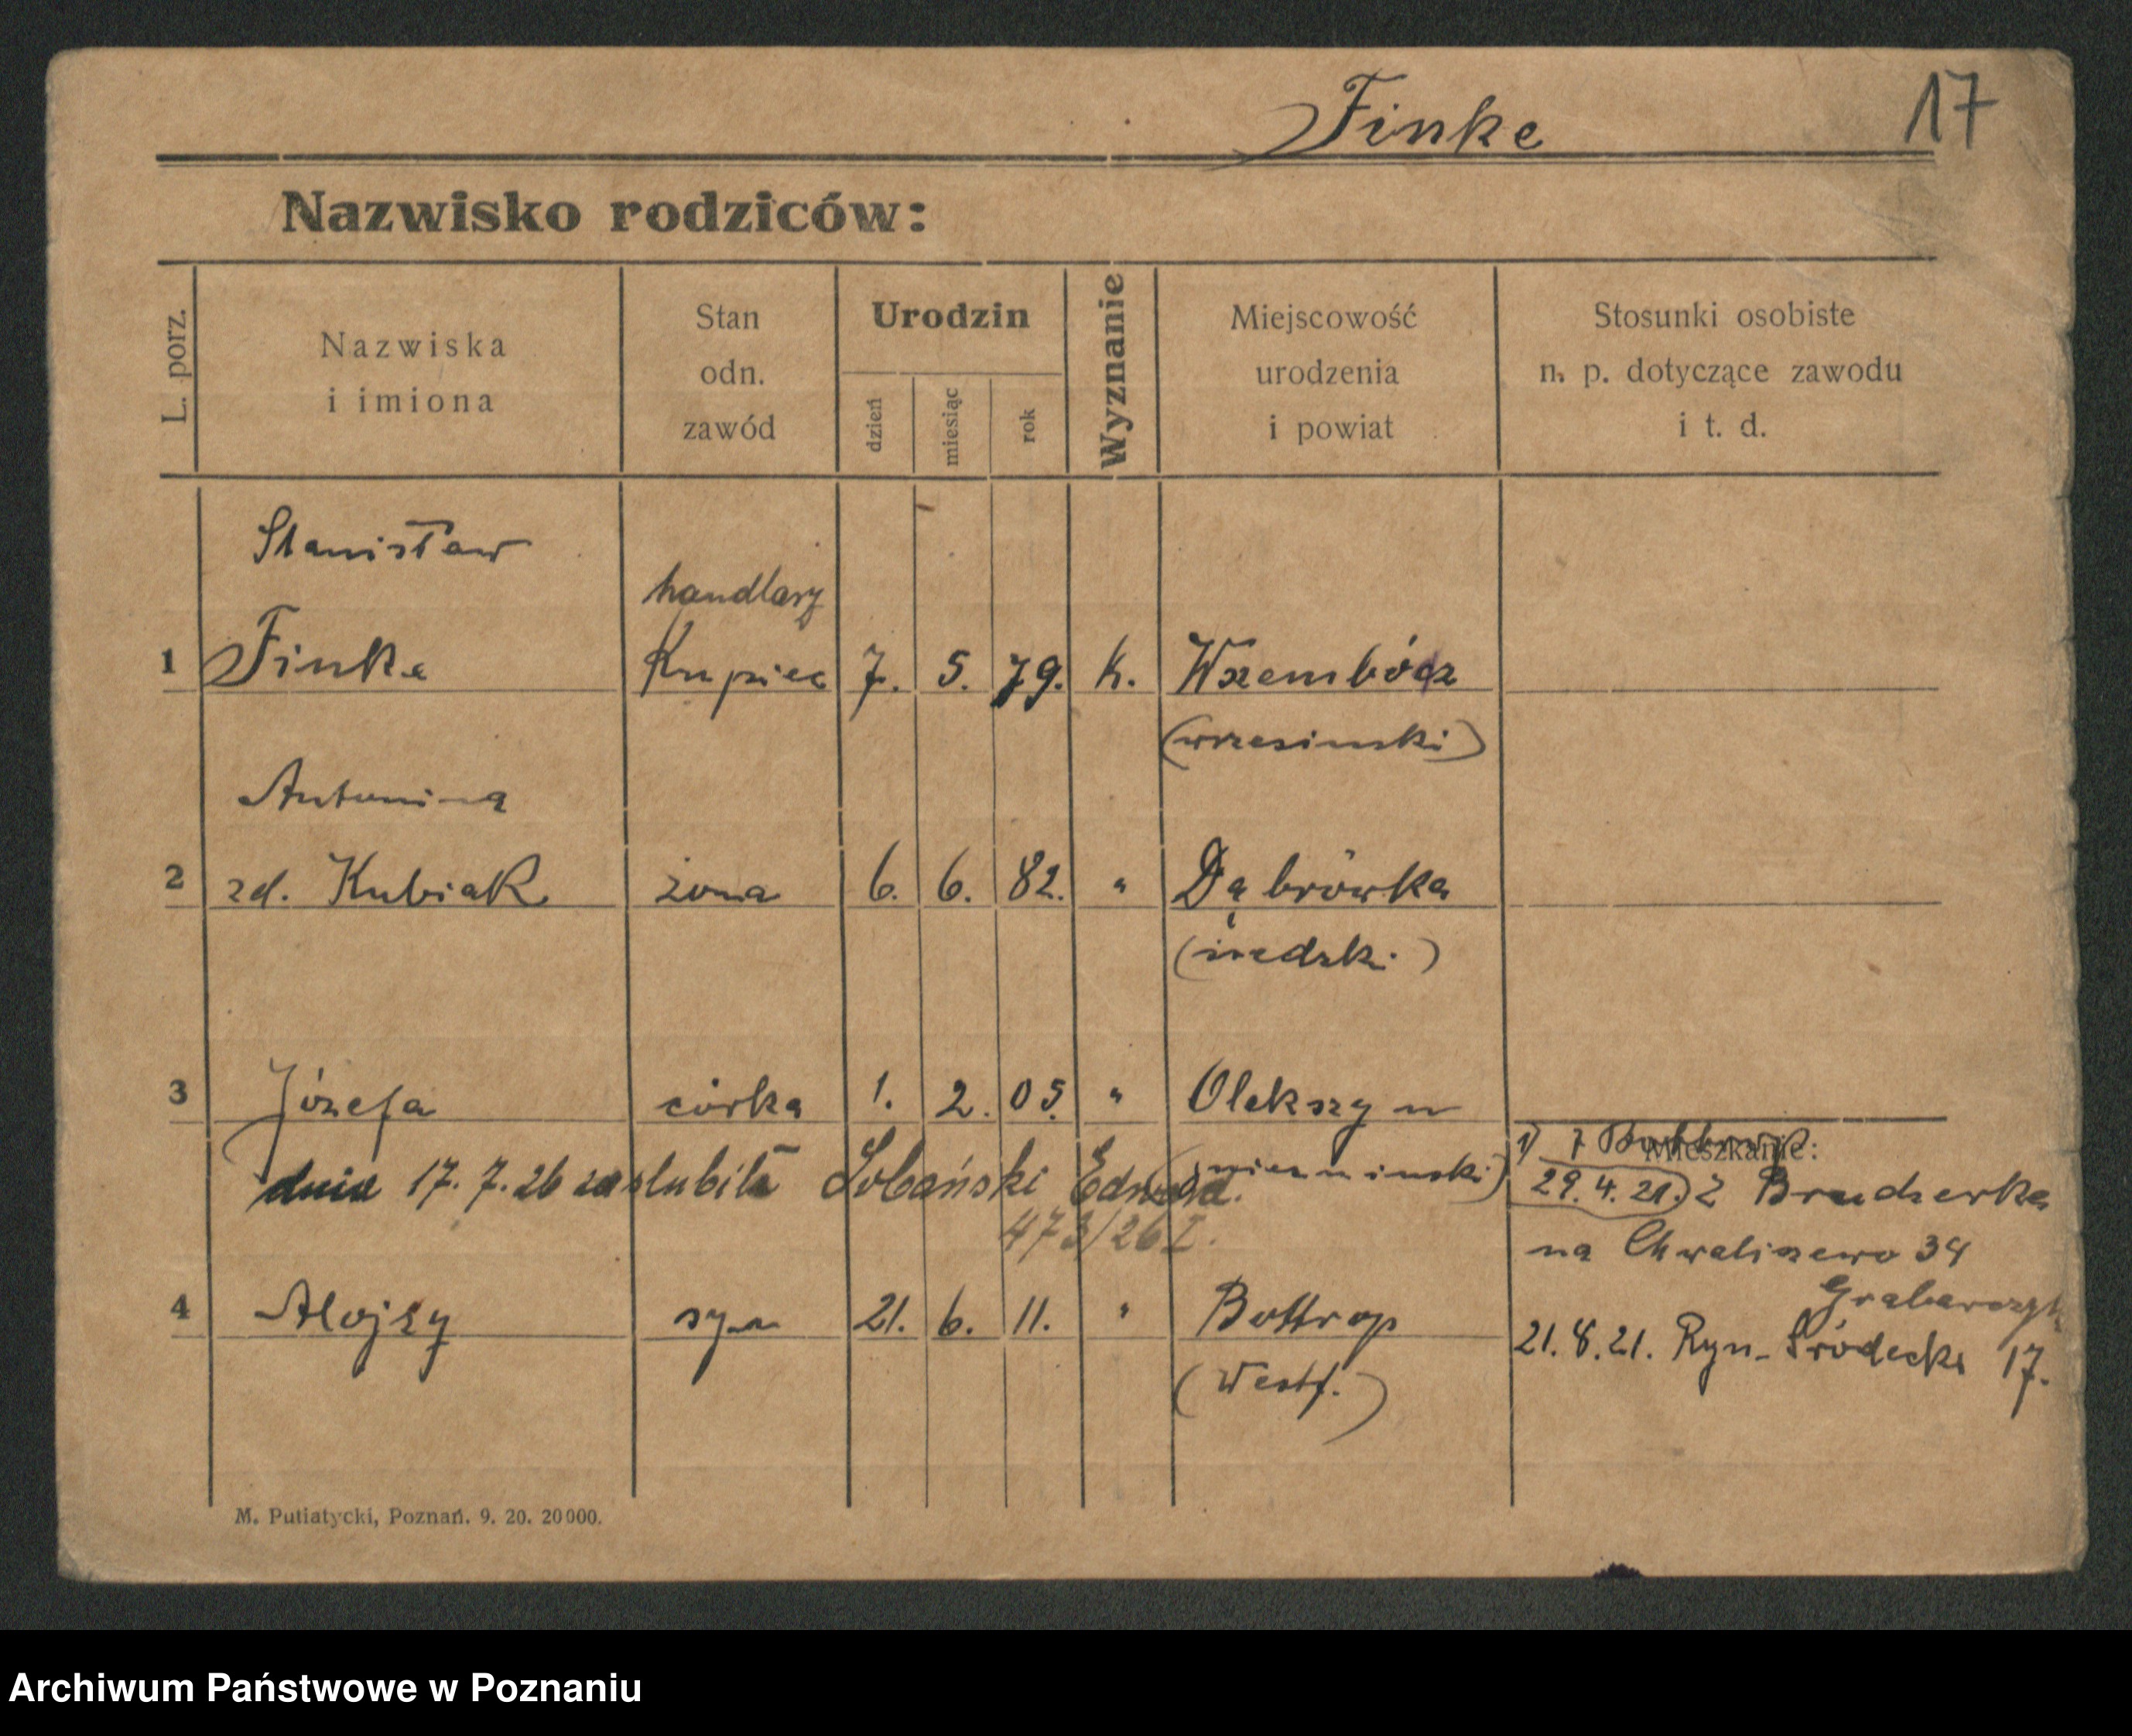 Finke
17
Nazwisko rodziców:
L. porz.
Nazwiska
i imiona
Stan
odn.
zawód
Urodzin
dzień
miesiąc
rok
Wyznanie
Miejscowość
urodzenia
i powiat
Stosunki osobiste
n. p. dotyczące zawodu
i t. d.
Stanisław
handlarz
1 Finke Kupiec 7. 5. 79. k. Wszembórz
(wrzesinski)
Antonina
2 zd. Kubiak żona 6. 6. 82. " Dąbrówka
(średzki)
3 Józefa córka 1. 2. 05. " Olekszyn
Mieszkanie:
1) z Bottrop
dnia 17. 7. 26 zaślubiła Łobański Edward.
29. 4. 21.) z Brudzewka
473/26 I.
na Chwaliszewo 34
Grabarczyk
4 Alojzy syn 21. 6. 11. " Bottrop
(Westf.)
21. 8. 21. Ryn. Śródecki 17.
M. Putiatycki, Poznań. 9. 20. 20000.
Archiwum Państwowe w Poznaniu